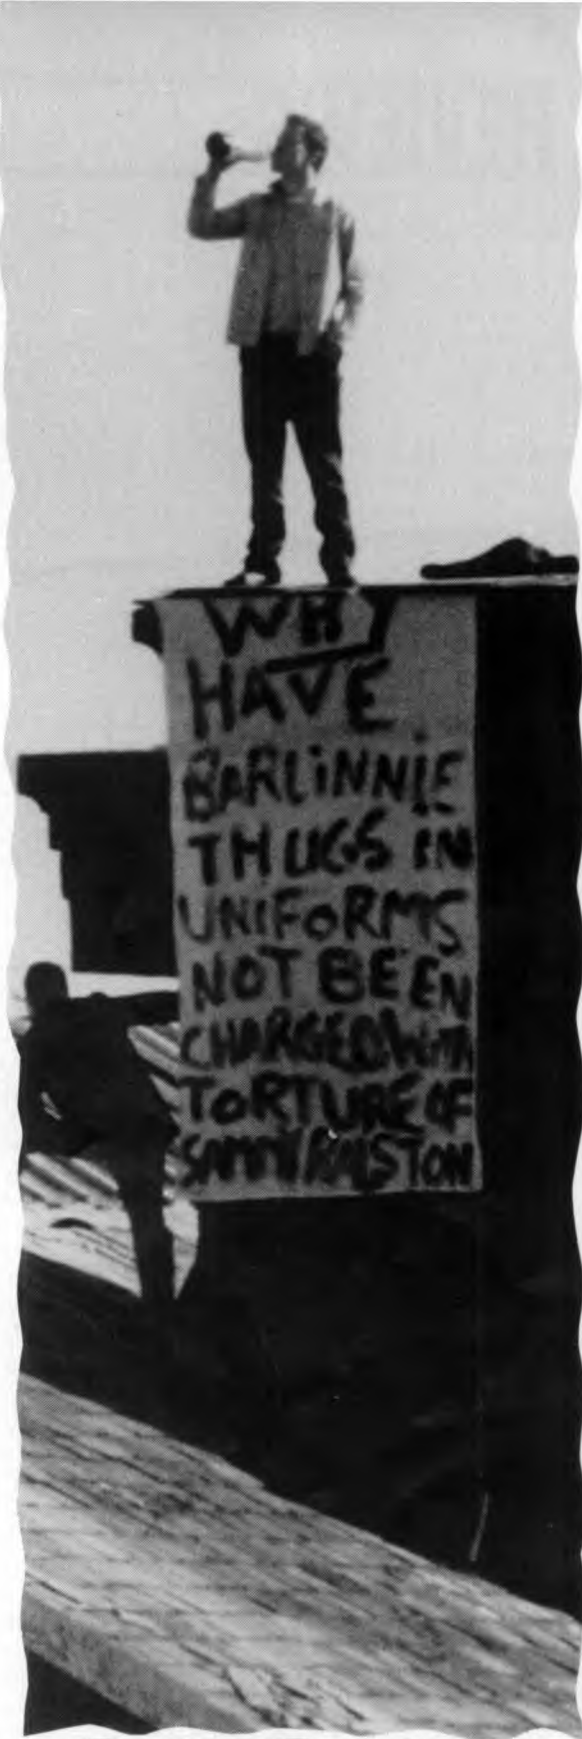 WHY
HAVE
BARLiNNIE
THUGS IN
UNIFoRMS
NOT BEEN
CHARGED WITH
ToRTURE OF
SAMMY RALSTON